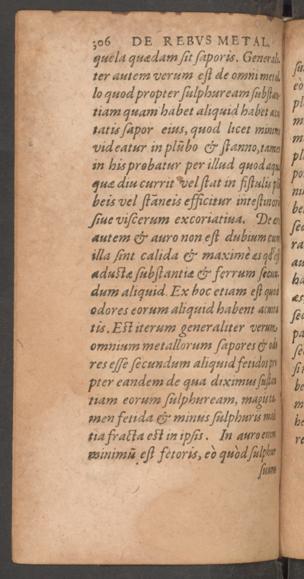 306 DE REBVS METAL.
quela quædam sit saporis. General
ter autem verum est de omni metal
lo quod propter sulphuream substan
tiam quam habet aliquid habet acu
tatis sapor eius, quod licet minimũ
videatur in plũbo & stanno, tamen
in his probatur per illud quod aqua
quæ diu currit vel stat in fistulis plũ
beis vel stãneis efficitur intestinorũ
siue viscerum excoriatiua. De ære
autem & auro non est dubium cum
illa sint calida & maximè æs
adustæ substantiæ & ferrum secun
dum aliquid. Ex hoc etiam est quod
odores eorum aliquid habent acuta
tis. Est iterum generaliter verum
omnium metallorum sapores & odo
res esse secundum aliquid fetidos pro
pter eandem de qua diximus substan
tiam eorum sulphuream, magis ta
men fetida & minus sulphuris mali
tia fracta est in ipsis. In auro enim
minimũ est fetoris, eò quòd sulphur
suum